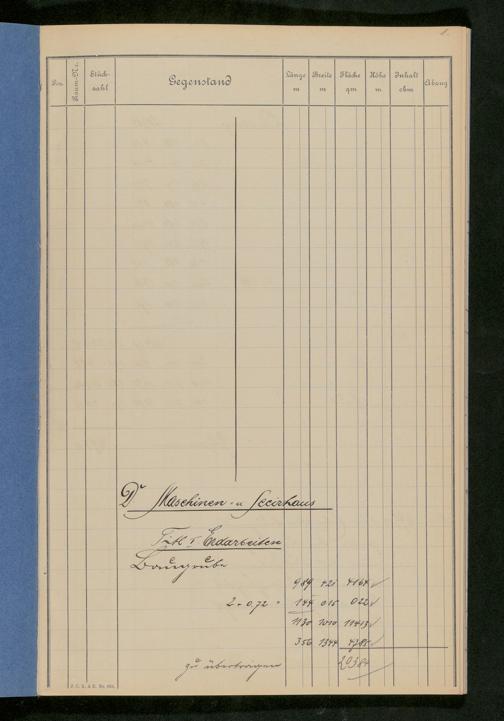 1.
Pos. Raum-No. Stückzahl Gegenstand Länge m Breite m Fläche qm Höhe m Inhalt cbm Abzug
Maschinen- u Secirhaus
Titel I Erdarbeiten
Baugrube
989 421 4164
2 · 0,72 = 144 015 022
1130 1010 11413
356 1344 4785
zu übertragen 20384